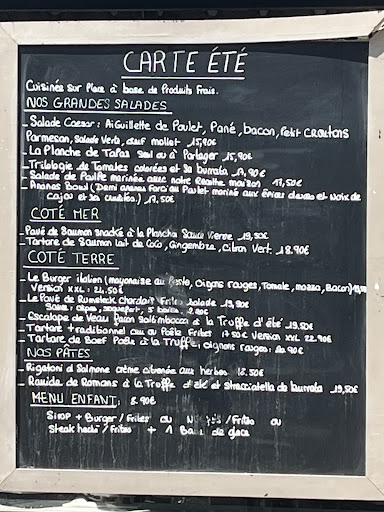 CARTE ÉTÉ
Cuisinés sur Place à base de Produits Frais.
NOS GRANDES SALADES
- Salade Caesar : Aiguillette de Poulet, Pané, bacon, Petit Croutons
Parmesan, Salade Verte, œuf mollet 15,90€
- La Planche de Tapas Seul ou à Partager 15,90€
- Trilologie de Tomates colorées et sa burrata 17,90€
- Salade de Poulpe marinée avec notre Recette maison 17,50€
- Ananas Bowl (Demi ananas farci au Poulet mariné aux épices douces et Noix de
Cajou et ses crudités) 17,50€
COTÉ MER
- Pavé de Saumon snacké à la Plancha Sauce Vierge 19,90€
- Tartare de Saumon lait de Coco, Gingembre, Citron Vert. 18.90€
COTÉ TERRE
- Le Burger italien (mayonaise au Pesto, Oignons rouges, Tomate, mozza, Bacon)
Version XXL : 24.50€
- Le Pavé de Rumsteck Charolais Frites Salade 19,90€
Sauce : cèpes, roquefort, 5 baies 2.90€
- Escalope de Veau Façon Saltimbocca à la Truffe d'été 19.50€
- Tartare traditionnel cru ou Poêlé Frites 17.50€ Version XXL 22.90€
- Tartare de Bœuf Poêlé à la Truffe, oignons rouges : 20.90€
NOS PÂTES
- Rigatoni al Salmone crème citronnée aux herbes 18.50€
- Raviole de Romans à la Truffe d'été et Stracciatella de burrata 19,50€
MENU ENFANT: 8.90€
Sirop + Burger / Frites ou Nuggets / Frites ou
Steak haché / Frites + 1 Boule de glace